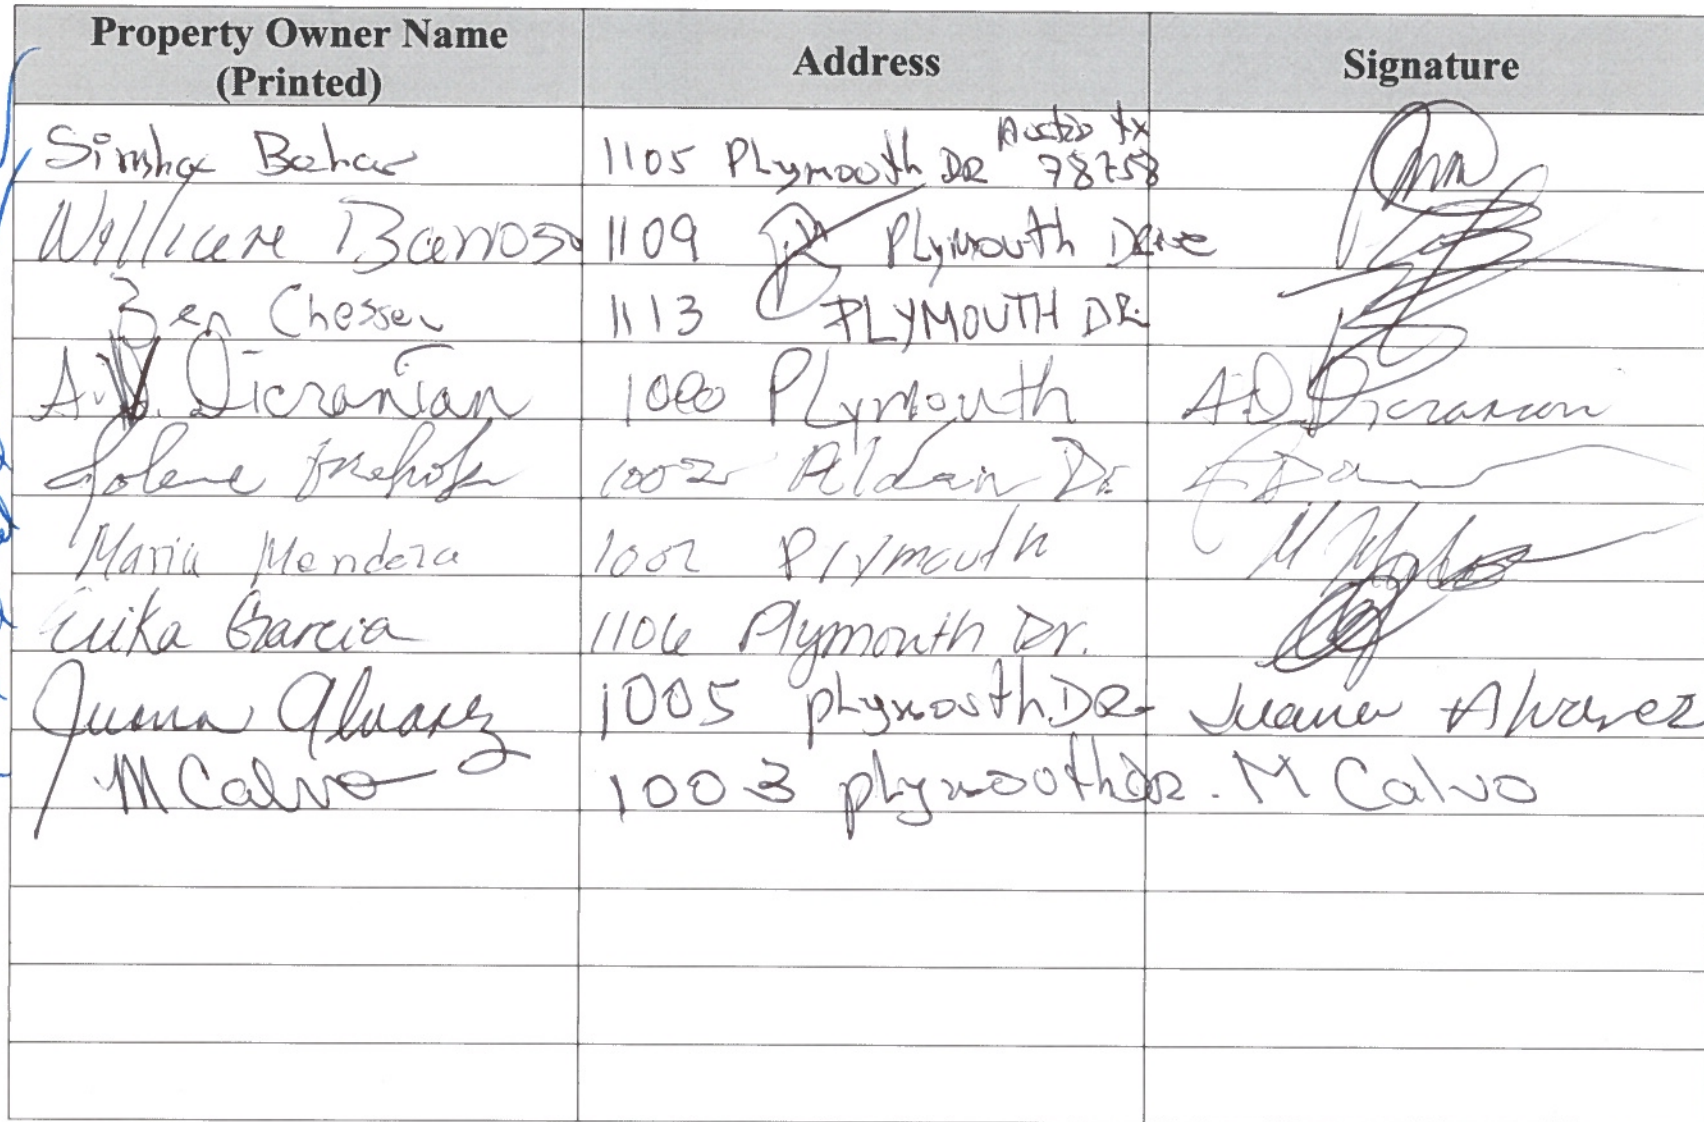 Property Owner Name Address Signature
(Printed)
Simha Behar 1105 Plymouth DR Austin tx 78758
William Barroso 1109 Plymouth Drive
Ben Chesser 1113 PLYMOUTH DR.
A.D. Dicranian 1000 Plymouth A.D. Dicranian
Jolene 1002 Aldain Dr.
Maria Mendoza 1002 Plymouth M
Erika Garcia 1106 Plymouth Dr.
Juana Alvarez 1005 plymouth DR Juana Alvarez
M Calvo 1003 plymouth DR. M Calvo